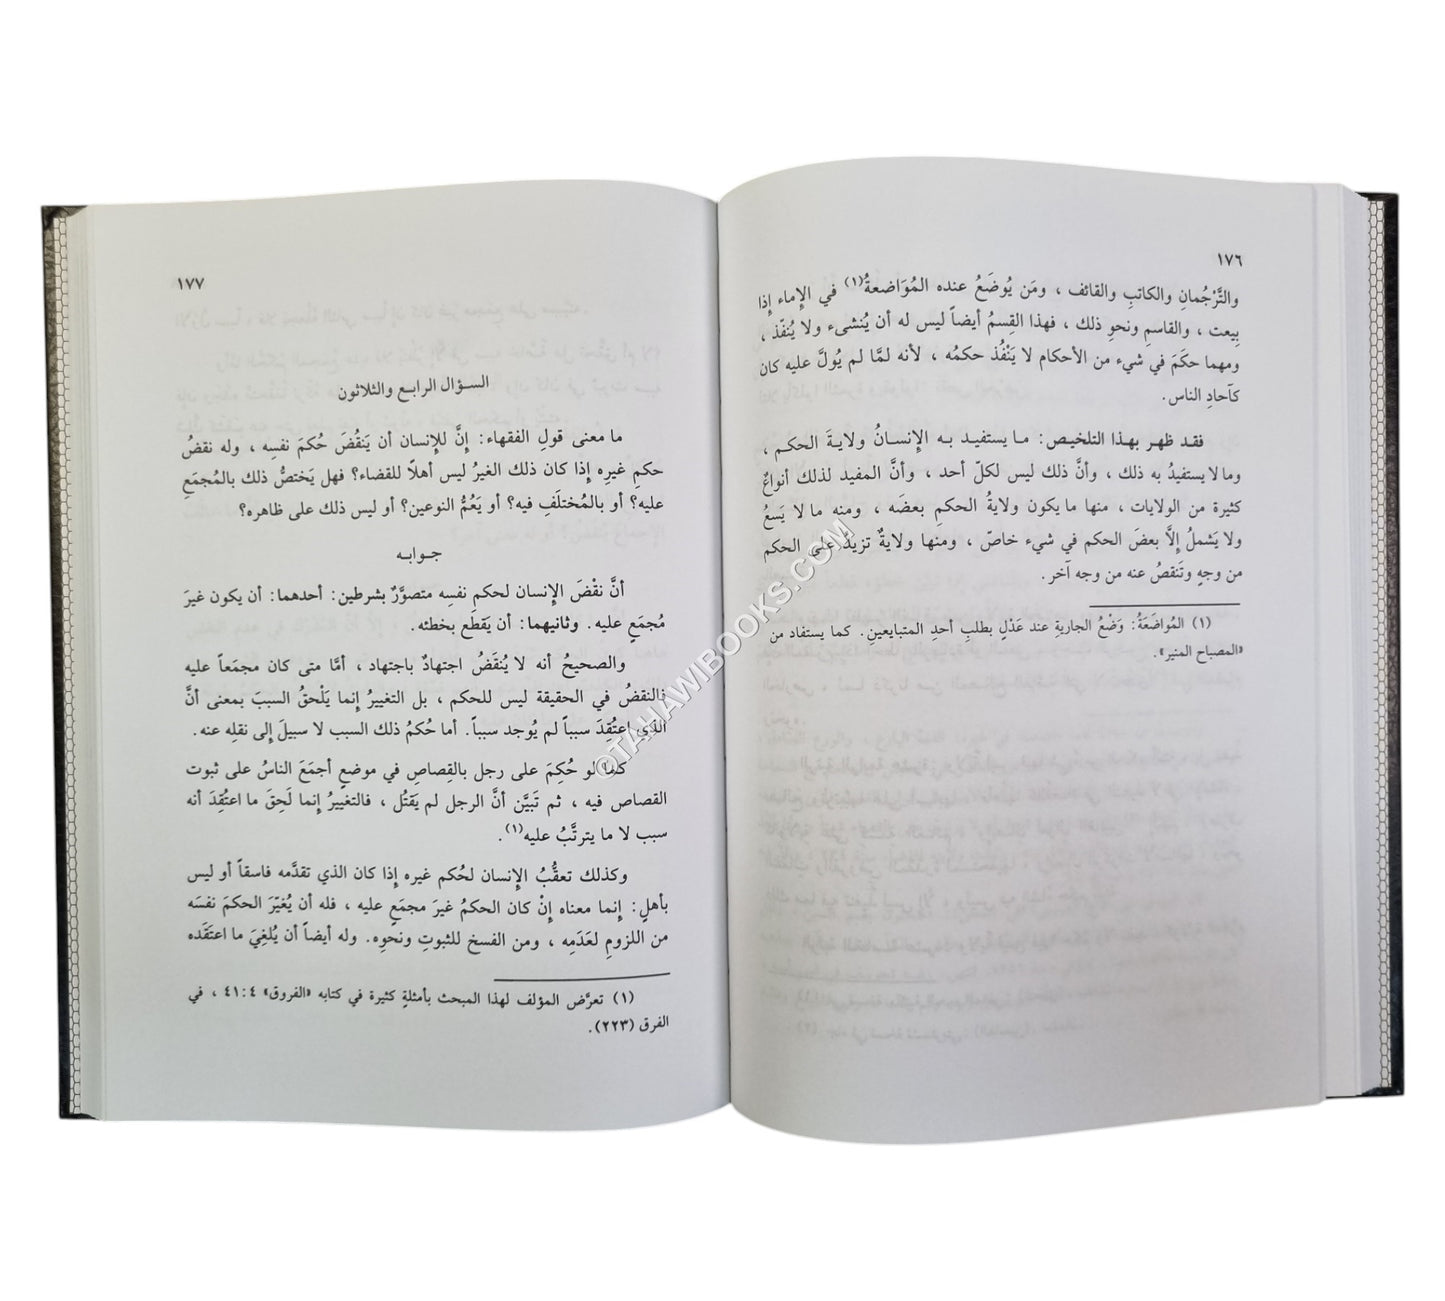 ١٧٦
والتَّرْجُمانِ والكاتبِ والقائف ، ومَن يُوضَعُ عنده المُوَاضعةُ(١) في الإماء إذا
بِيعت ، والقاسمِ ونحوِ ذلك ، فهذا القِسمُ أيضاً ليس له أن يُنشىء ولا يُنفّذ ،
ومهما حكَمَ في شيء من الأحكام لا يَنْفُذ حكمُه ، لأنه لمَّا لم يُولَّ عليه كان
كآحادِ الناس.
فقد ظهر بهذا التلخيص: ما يستفيد به الإنسانُ ولايةَ الحكم ،
وما لا يستفيدُ به ذلك ، وأنَّ ذلك ليس لكلّ أحد ، وأنَّ المفيد لذلك أنواعٌ
كثيرة من الولايات ، منها ما يكون ولايةُ الحكمِ بعضَه ، ومنه ما لا يَسَعُ
ولا يَشملُ إلَّا بعضَ الحكم في شيء خاصّ ، ومنها ولايةٌ تزيدُ على الحكم
من وجهٍ وتَنقصُ عنه من وجه آخر.
(١) المُواضَعَةُ: وَضْعُ الجاريةِ عند عَدْلٍ بطلبِ أحدِ المتبايعينِ. كما يستفاد من
«المصباح المنير».
١٧٧
السـؤال الرابـع والثلاثون
ما معنى قولِ الفقهاء: إنَّ للإنسان أن يَنقُضَ حُكمَ نفسِه ، وله نقضُ
حكمِ غيرِه إذا كان ذلك الغيرُ ليس أهلًا للقضاء؟ فهل يَختصُّ ذلك بالمُجمَعِ
عليه؟ أو بالمُختلَفِ فيه؟ أو يَعُمُّ النوعين؟ أو ليس ذلك على ظاهره؟
جـوابـه
أنَّ نقْضَ الإنسان لحكم نفسِه متصوَّرٌ بشرطين: أحدهما: أن يكون غيرَ
مُجمَعٍ عليه. وثانيهما: أن يَقطَع بخطئه.
والصحيحُ أنه لا يُنقَضُ اجتهادٌ باجتهاد ، أمَّا متى كان مجمَعاً عليه
فالنقضُ في الحقيقة ليس للحكم ، بل التغييرُ إنما يَلْحقُ السببَ بمعنى أنَّ
الذي اعتُقِدَ سبباً لم يُوجد سبباً. أما حُكمُ ذلك السبب لا سبيلَ إلى نقلِه عنه.
كما لو حُكِمَ على رجل بالقِصاصِ في موضعٍ أجمَعَ الناسُ على ثبوت
القصاص فيه ، ثم تَبيَّن أنَّ الرجل لم يَقتُل ، فالتغييرُ إنما لَحِقَ ما اعتُقِدَ أنه
سبب لا ما يترتَّبُ عليه(١).
وكذلك تعقُّبُ الإنسان لحُكم غيره إذا كان الذي تقدَّمه فاسقاً أو ليس
بأهلٍ: إنما معناه إنْ كان الحكمُ غيرَ مجمَعٍ عليه ، فله أن يُغيّرَ الحكمَ نفسَه
من اللزومِ لعَدَمِه ، ومن الفسخ للثبوتِ ونحوِه. وله أيضاً أن يُلغِيَ ما اعتَقَده
(١) تعرَّض المؤلف لهذا المبحث بأمثلةٍ كثيرة في كتابه «الفروق» ٤١:٤ ، في
الفرق (٢٢٣).
©TAHAWIBOOKS.COM